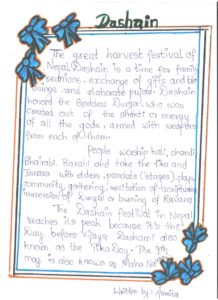 Dashain
The great harvest festival of
Nepal Dashain is a time for family
reunions, exchange of gifts and ble
ssings, and elaborate pujas. Dashain
honors the Goddess Durga, who was
created out of the shakti or energy
of all the gods, armed with weapons
from each of them.
People worship kali, chandi
Bhairabi, Barahi and take the tika and
Jamara with elders, pandals (stages), plays
community, gathering, recitation of scriptures
immersion of Durga or burning of Ravana
The Dashain festival in Nepal
reaches its peak because it's the
day before Vijaya Dashami also
known as the Tika Day. The
may is also known as Maha Na
Written by: